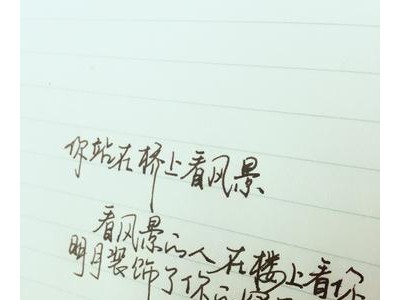 你站在桥上看风景
看风景的人在楼上看你
明月装饰了你的